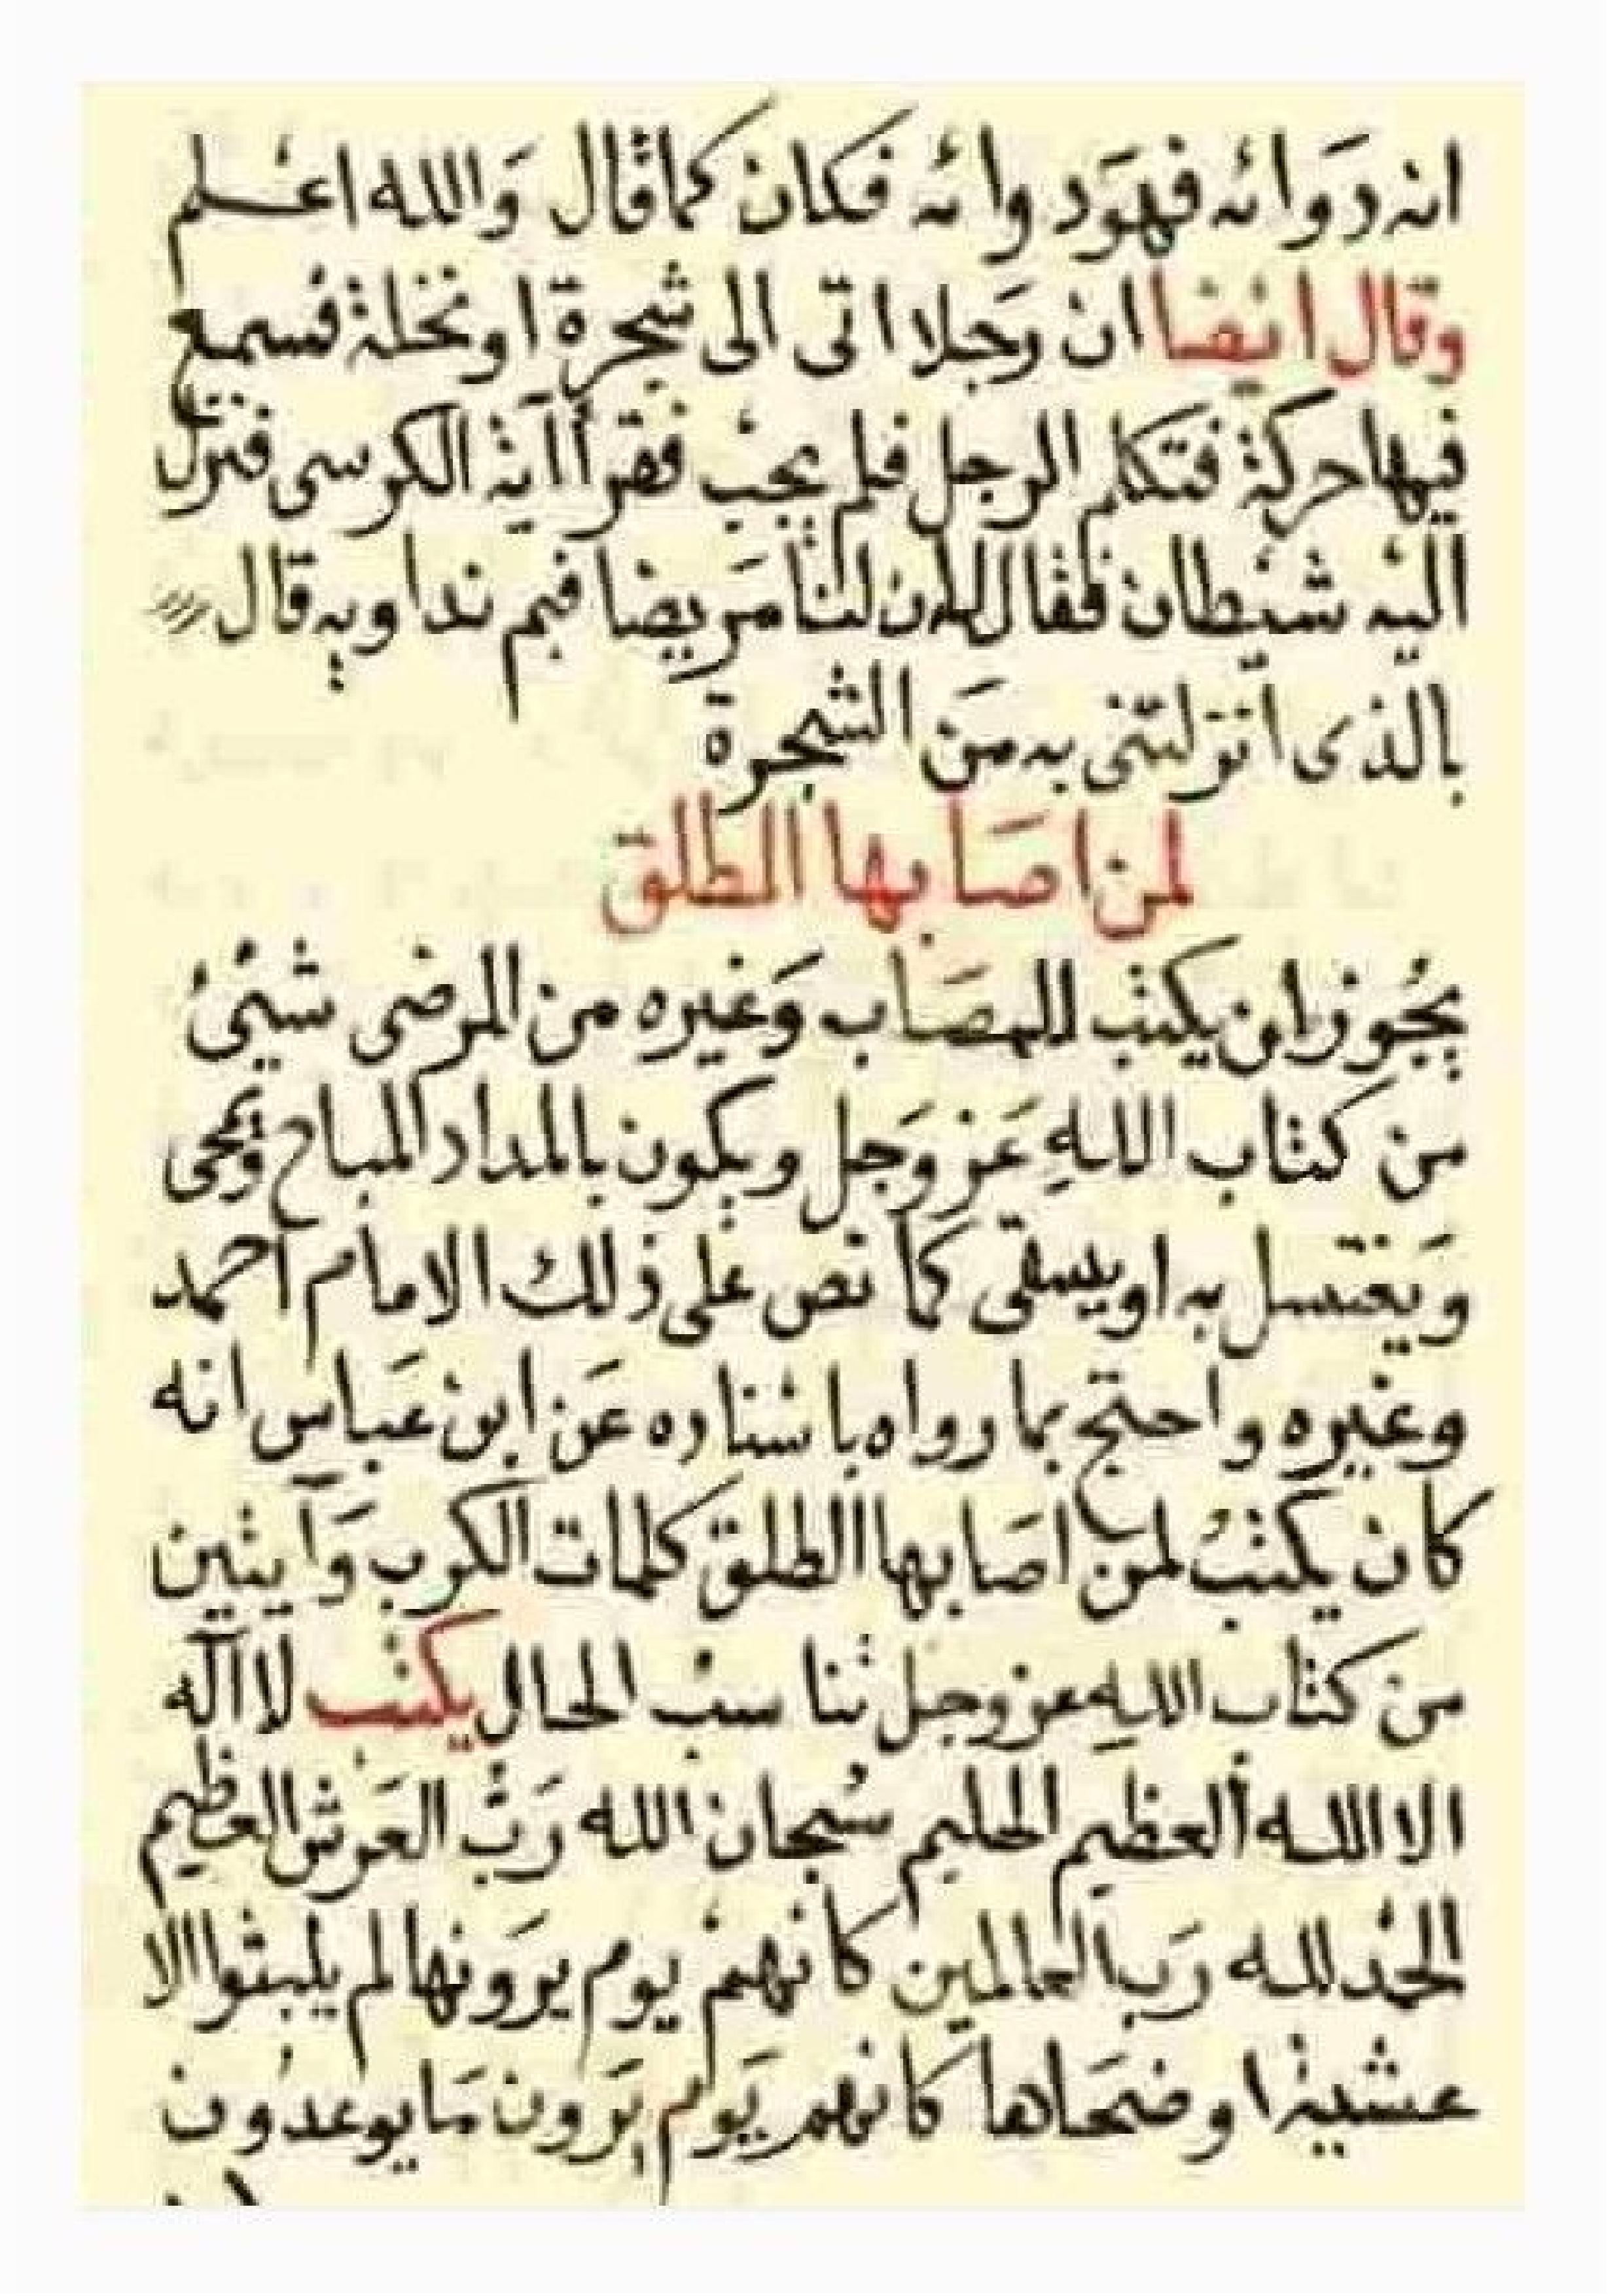 انه دوائه فهو دوائه فكان كما قال والله اعلم
وقال ايضا ان رجلا اتى الى شجرة او نخلة فسمع
فيها حركة فتكلم الرجل فلم يجب فقرأ آية الكرسى فنزل
اليه شيطان فقال له ان لنا مريضا فبم نداويه قال
بالذى انزلتنى به من الشجرة
لمن اصابها الطلق
يجوز ان يكتب للمصاب وغيره من المرضى شيئ
من كتاب الله عز وجل ويكون بالمداد المباح ويمحى
ويغتسل به او يسقى كما نص على ذلك الامام احمد
وغيره واحتج بما رواه باسناده عن ابن عباس انه
كان يكتب لمن اصابها الطلق كلمات الكرب وآيتين
من كتاب الله عز وجل تناسب الحال يكتب لا اله
الا الله العظيم الحليم سبحان الله رب العرش العظيم
الحمد لله رب العالمين كانهم يوم يرونها لم يلبثوا الا
عشية او ضحاها كانهم يوم يرون ما يوعدون